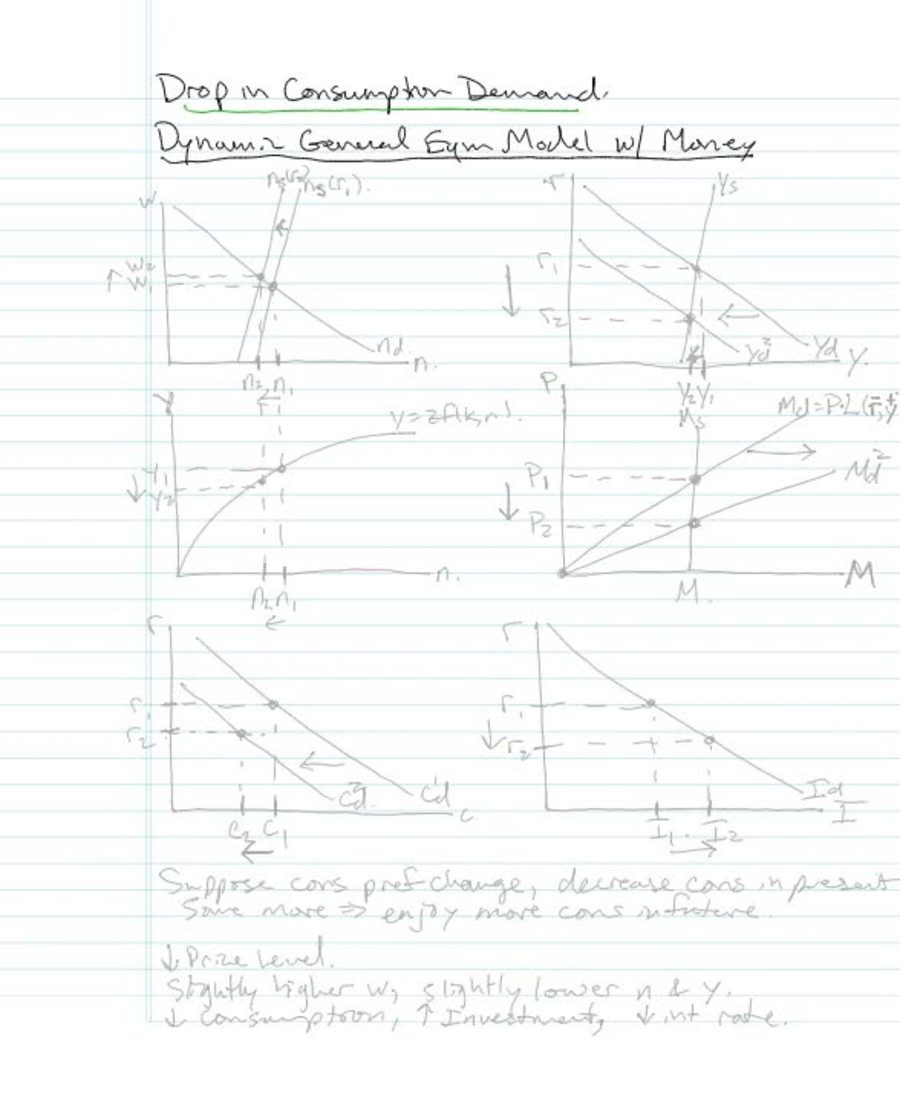 Drop in Consumption Demand.
Dynamic General Eqm Model w/ Money
ns(r2) ns(r1).
w
w2
w1
nd
n.
n2 n1
r
Ys
r1
r2
Yd² Yd Y.
Y2 Y1
y
y=zf(k,n).
Y1
Y2
n.
n2 n1
P
Ms
Md=P·L(r,y
Md²
P1
P2
M
M.
r
r1
r2
Cd² C'd
c
C2 C1
r
r1
r2
Id
I
I1. I2
Suppose cons pref change, decrease cons in present
Save more => enjoy more cons in future.
↓ Price Level.
Slightly higher w, slightly lower n & y.
↓ Consumption, ↑ Investment, ↓ int rate.